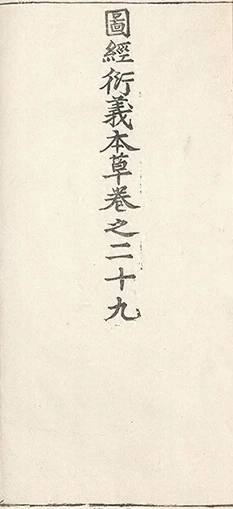 圖經衍義本草卷之二十九